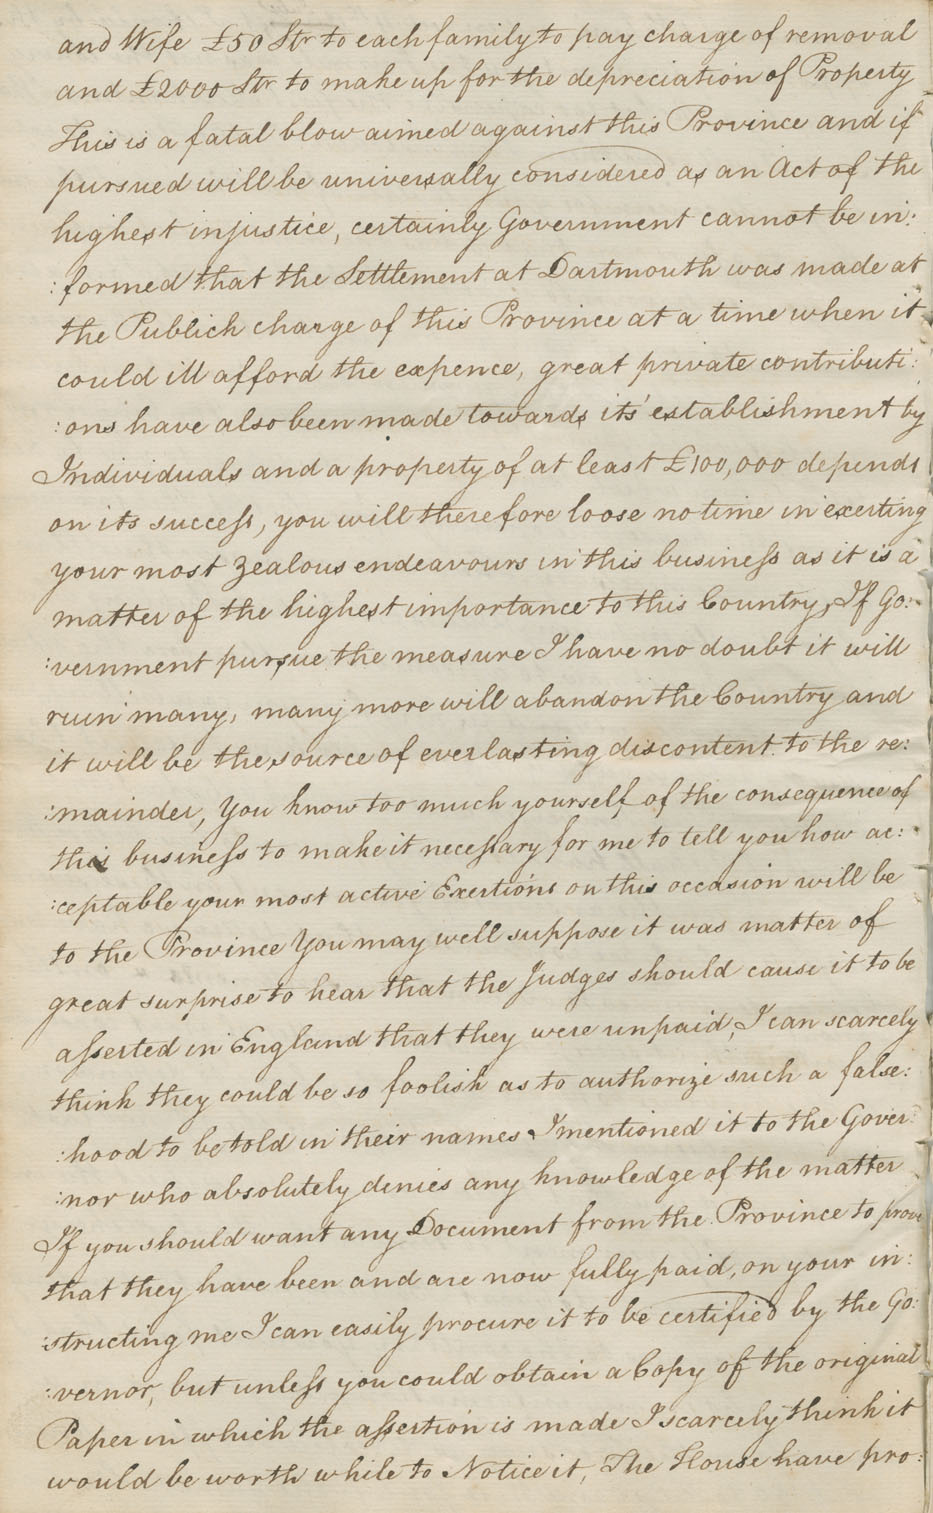 and Wife £50 Str to each family to pay charge of removal
and £2000 Str to make up for the depreciation of Property
This is a fatal blow aimed against this Province and if
pursued will be universally considered as an Act of the
highest injustice, certainly Government cannot be in:
:formed that the Settlement at Dartmouth was made at
the Publick charge of this Province at a time when it
could ill afford the expence, great private contributi:
:ons have also been made towards its' establishment by
Individuals and a property of at least £100,000 depends
on its success, you will therefore loose no time in exerting
your most zealous endeavours in this business as it is a
matter of the highest importance to this Country, If Go:
:vernment pursue the measure I have no doubt it will
ruin many, many more will abandon the Country and
it will be the source of everlasting discontent to the re:
:mainder, You know too much yourself of the consequence of
this business to make it necessary for me to tell you how ac:
:ceptable your most active Exertions on this occasion will be
to the Province You may well suppose it was matter of
great surprise to hear that the Judges should cause it to be
asserted in England that they were unpaid, I can scarcely
think they could be so foolish as to authorize such a false:
:hood to be told in their names I mentioned it to the Gover:
:nor who absolutely denies any knowledge of the matter
If you should want any Document from the Province to prove
that they have been and are now fully paid, on your in:
:structing me I can easily procure it to be certified by the Go:
:vernor, but unless you could obtain a Copy of the original
Paper in which the assertion is made I scarcely think it
would be worth while to Notice it, The House have pro: